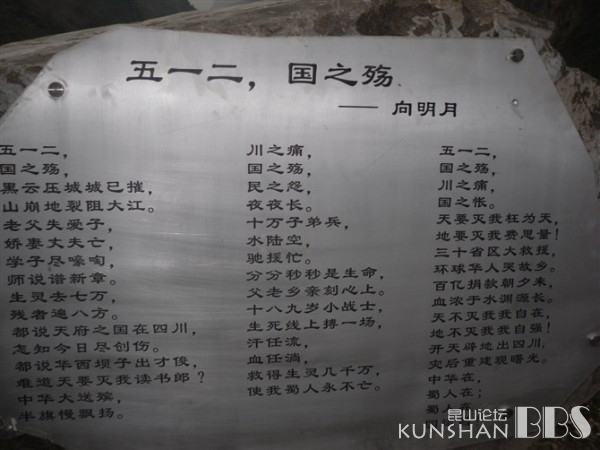 五一二，国之殇
—— 向明月
五一二，
国之殇，
黑云压城城已摧，
山崩地裂阻大江。
老父失爱子，
娇妻丈夫亡，
学子尽嚎啕，
师说谱新章。
生灵去七万，
残者逾八方。
都说天府之国在四川，
怎知今日尽创伤。
都说华西坝子出才俊，
难道天要灭我读书郎？
中华大送殡，
半旗慢飘扬。
川之痛，
国之殇，
民之怨，
夜夜长。
十万子弟兵，
水陆空，
驰援忙。
分分秒秒是生命，
父老乡亲刻心上。
十八九岁小战士，
生死线上搏一场，
汗任流，
血任淌，
救得生灵几千万，
使我蜀人永不亡。
五一二，
国之殇，
川之痛，
国之怅。
天要灭我枉为天，
地要灭我费思量！
三十省区大救援，
环球华人哭故乡。
百亿捐款朝夕来，
血浓于水渊源长。
天不灭我我自在，
地不灭我我自强！
开天辟地出四川，
灾后重建现曙光。
中华在，
蜀人在；
蜀人在，
昆山论坛
KUNSHAN BBS